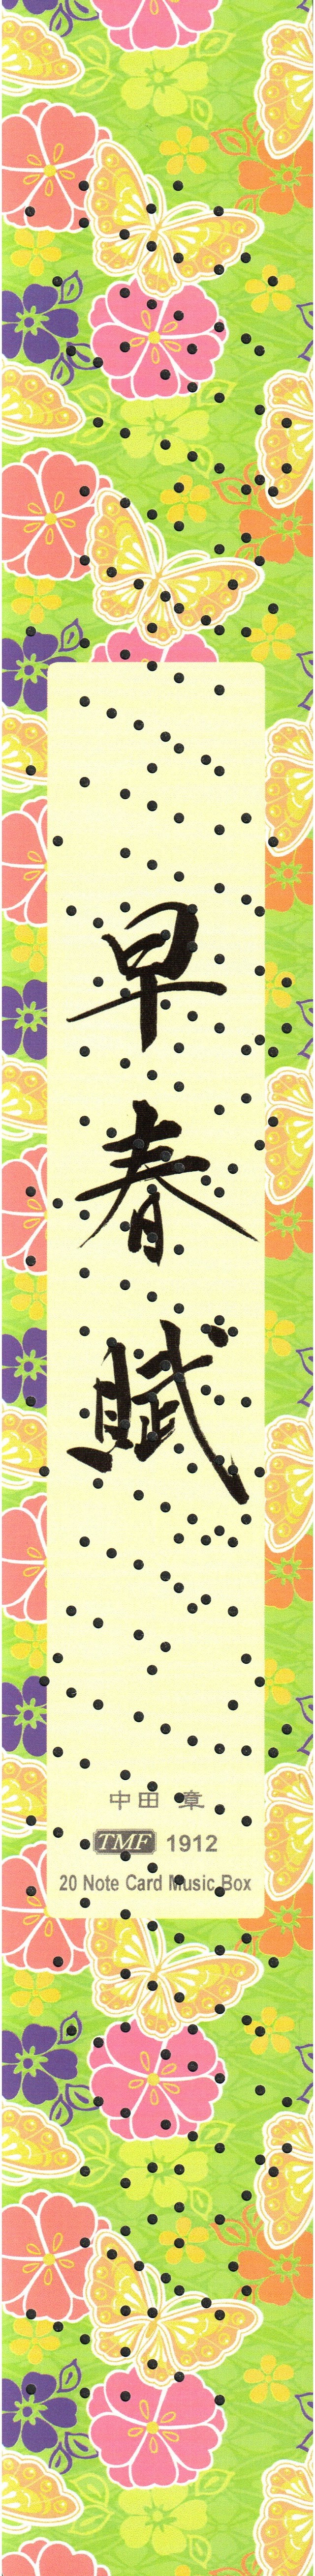 早春賦
中田 章
TMF 1912
20 Note Card Music Box